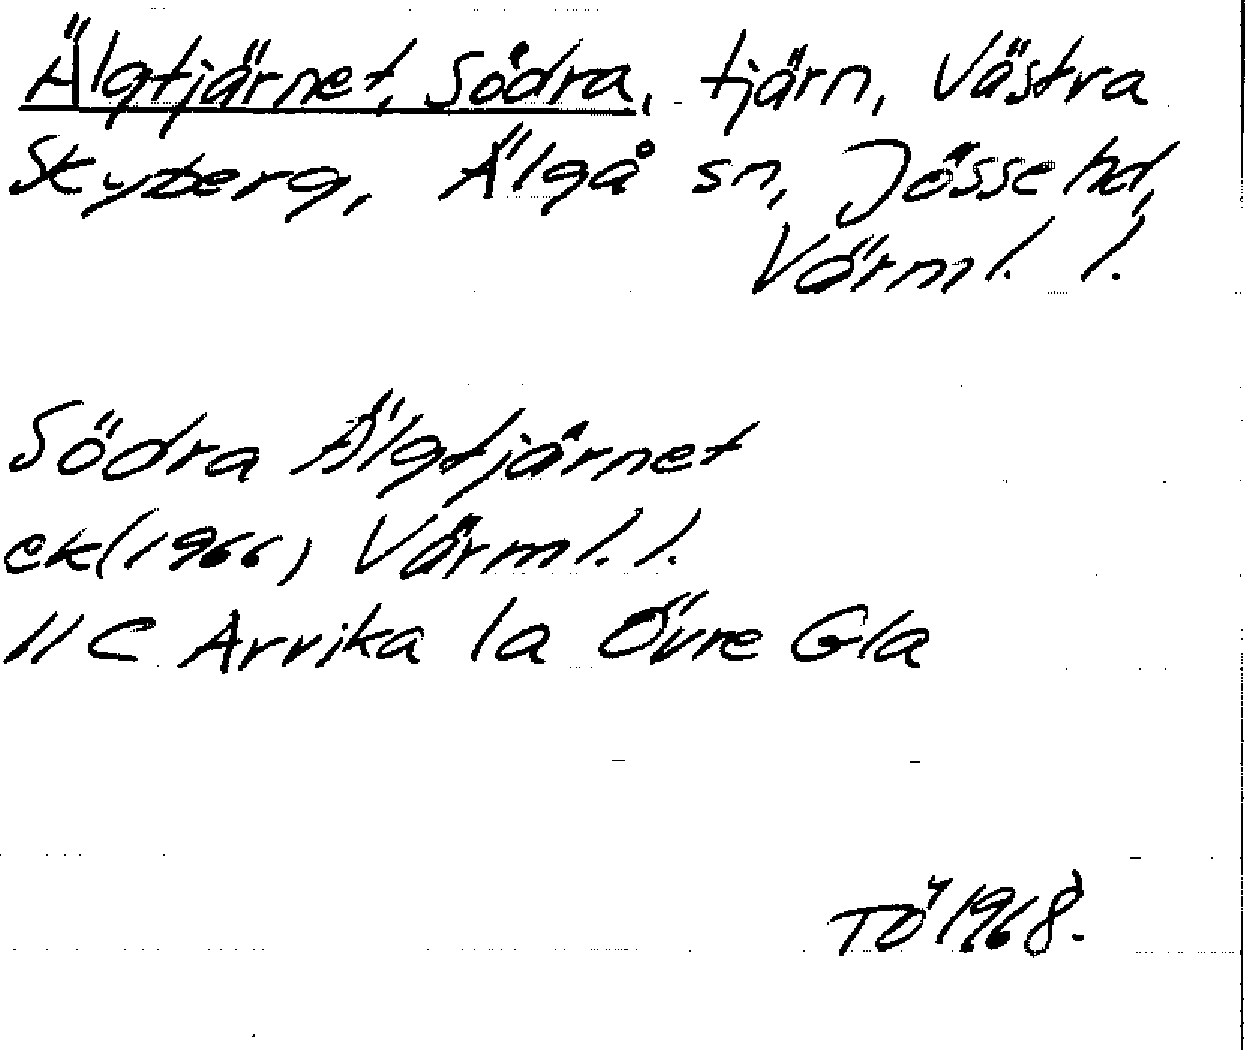 Älgtjärnet, Södra, tjärn, Västra
Skyberg, Älgå sn, Jösse hd,
Värml. l.
Södra Älgtjärnet
ek(1966) Värml. l.
11 C Arvika 1a Övre Gla
TÖ 1968.